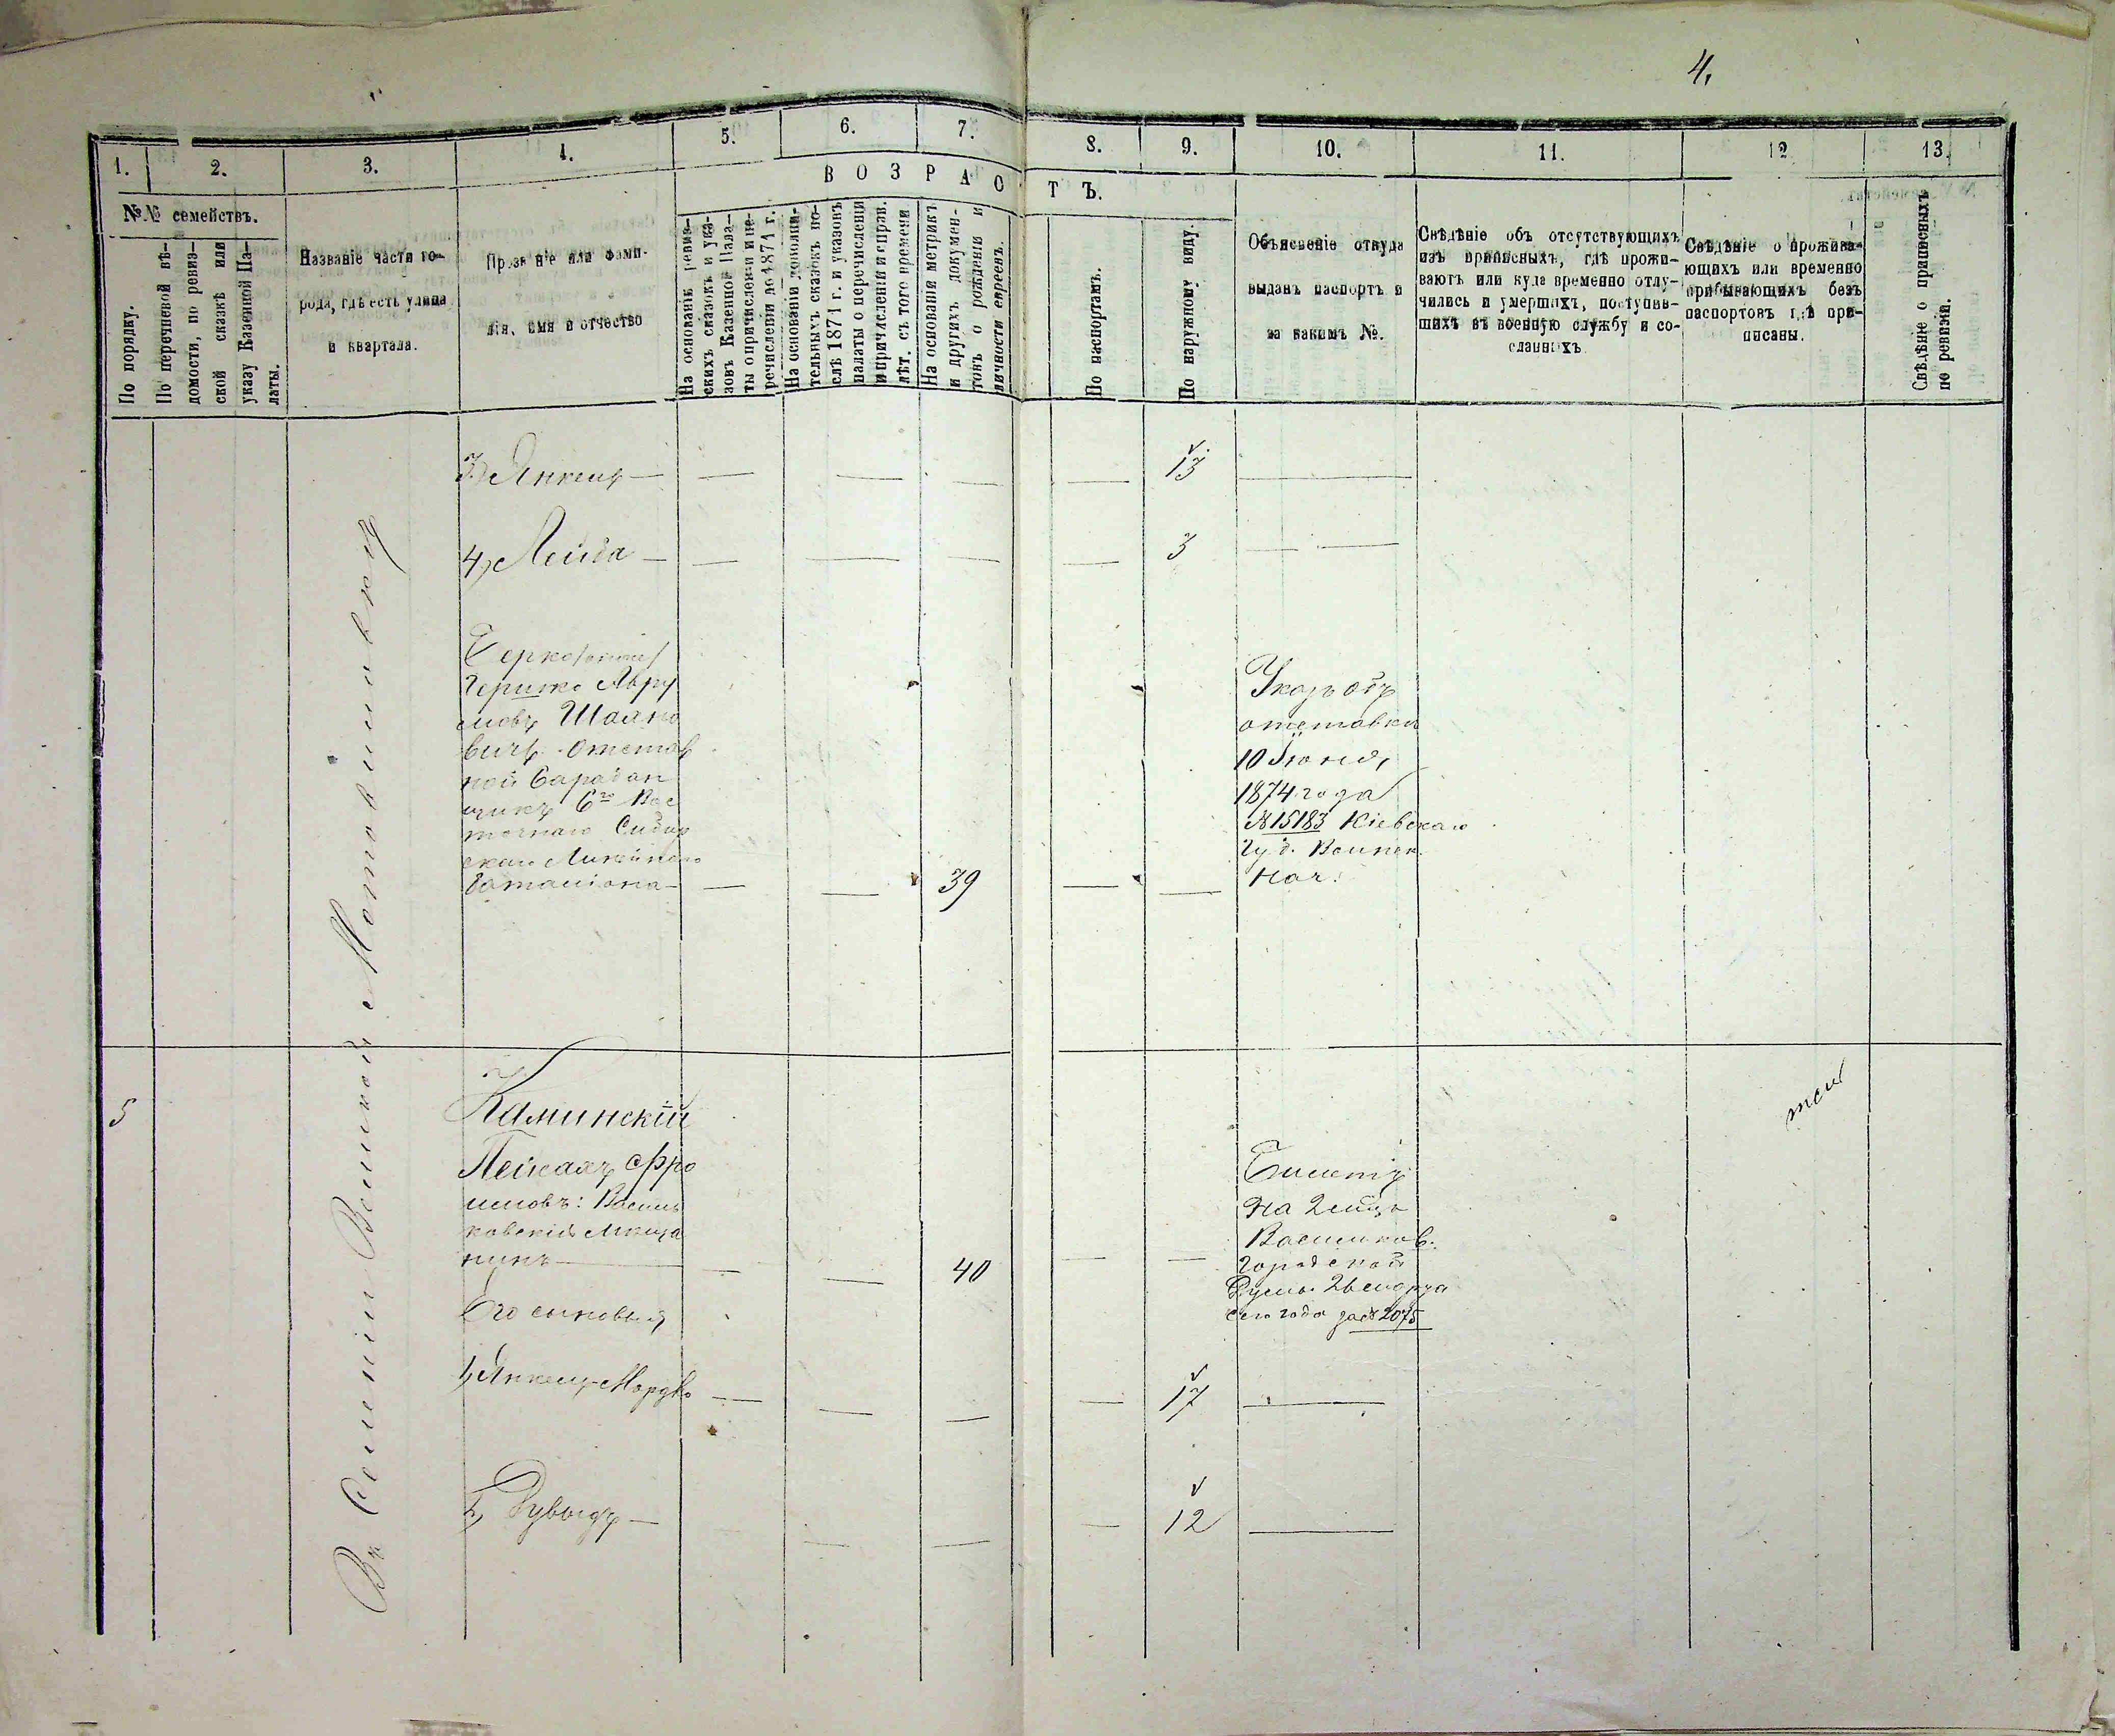 4.
1. 2. 3. 4. 5. 6. 7. 8. 9. 10. 11. 12 13.
ВОЗРАСТЪ.
№№ семействъ.
По порядку.
По перечневой вѣ-
домости, по ревиз-
ской сказкѣ или
указу Казенной Па-
латы.
Названіе части го-
рода, гдѣ есть улица
и квартала.
Прозваніе или фами-
лія, имя и отчество
На основаніи ревиз-
скихъ сказокъ и ука-
зовъ Казенной Пала-
ты о причисленіи и пе-
речисленіи до 1871 г.
На основаніи дополни-
тельныхъ сказокъ по-
слѣ 1871 г. и указовъ
палаты о перечисленіи
и причисленіи и справ.
лѣт. съ того времени
На основаніи метрикъ
и другихъ докумен-
товъ о рожденіи и
личности евреевъ.
По паспортамъ.
По наружному виду.
Объясненіе откуда
выданъ паспортъ и
за какимъ №.
Свѣдѣніе объ отсутствующихъ
изъ приписныхъ, гдѣ прожи-
ваютъ или куда временно отлу-
чились и умершихъ, поступив-
шихъ въ военную службу и со-
сланныхъ
Свѣдѣніе о прожива-
ющихъ или временно
прибывающихъ безъ
паспортовъ гдѣ при-
писаны.
Свѣдѣніе о приписныхъ
по ревизіи.
3) Янкель — 13
4) Лейба — 3
Берко
Гершко Авру
мовъ Шаяно
вичъ отстав
ной барабан
щикъ 6го Вос
точнаго Сибир
скаго Линейнаго
Баталіона — 39
Указъ объ
отставкѣ
10 Іюня
1874 года
№ 15183 Кіевскаго
Губ. Воинск.
Нач.
Въ Селеніи Великой Мотовиловкѣ
5
Каминскій
Пейсахъ Фро
имовъ: Василь
ковскій мѣща
нинъ — 40
Билетъ
на
Васильков.
Городской
Думы 26 марта
сего года за № 2075
Его сыновья
1) Янкель Мордко — 17
2) Дувыдъ — 12